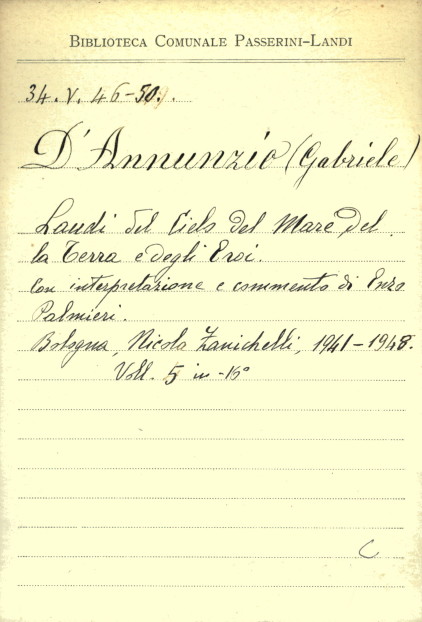 BIBLIOTECA COMUNALE PASSERINI-LANDI
34. V. 46-50.
D'Annunzio (Gabriele)
Laudi del Cielo del Mare del
la Terra e degli Eroi.
Con interpretazione e commento di Enzo
Palmieri.
Bologna, Nicola Zanichelli, 1941-1948.
Voll. 5 in-16°
C